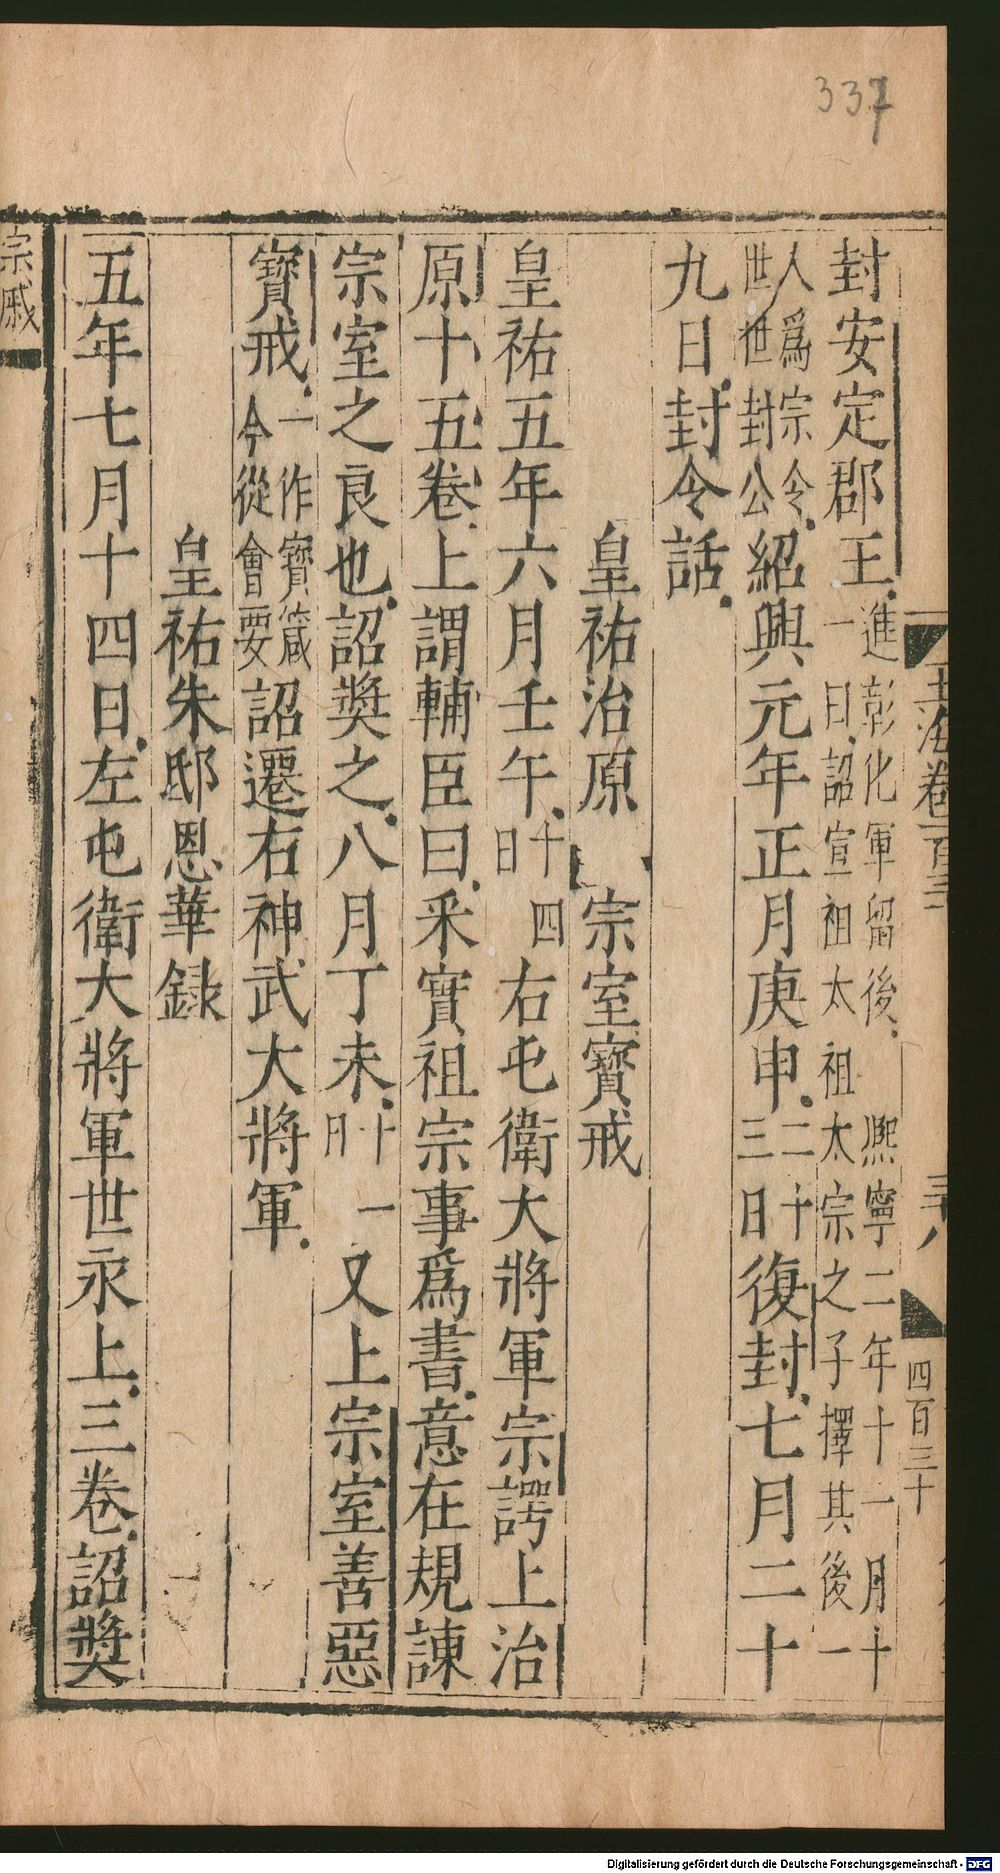 337
玉海卷百三 三十八 四百三十
封安定郡王進彰化軍留後熙寧二年十一月十一日詔宣祖太祖太宗之子擇其後一
人爲宗令世世封公紹興元年正月庚申二十三日復封七月二十
九日封令話
皇祐治原 宗室寶戒
皇祐五年六月壬午十四日右屯衛大將軍宗諤上治
原十五卷上謂輔臣曰采實祖宗事爲書意在規諫
宗室之良也詔奬之八月丁未十一日又上宗室善惡
寶戒一作寶箴今從會要詔遷右神武大將軍
皇祐朱邸恩華録
五年七月十四日左屯衛大將軍世永上三卷詔奬
宗戚
Digitalisierung gefördert durch die Deutsche Forschungsgemeinschaft - DFG